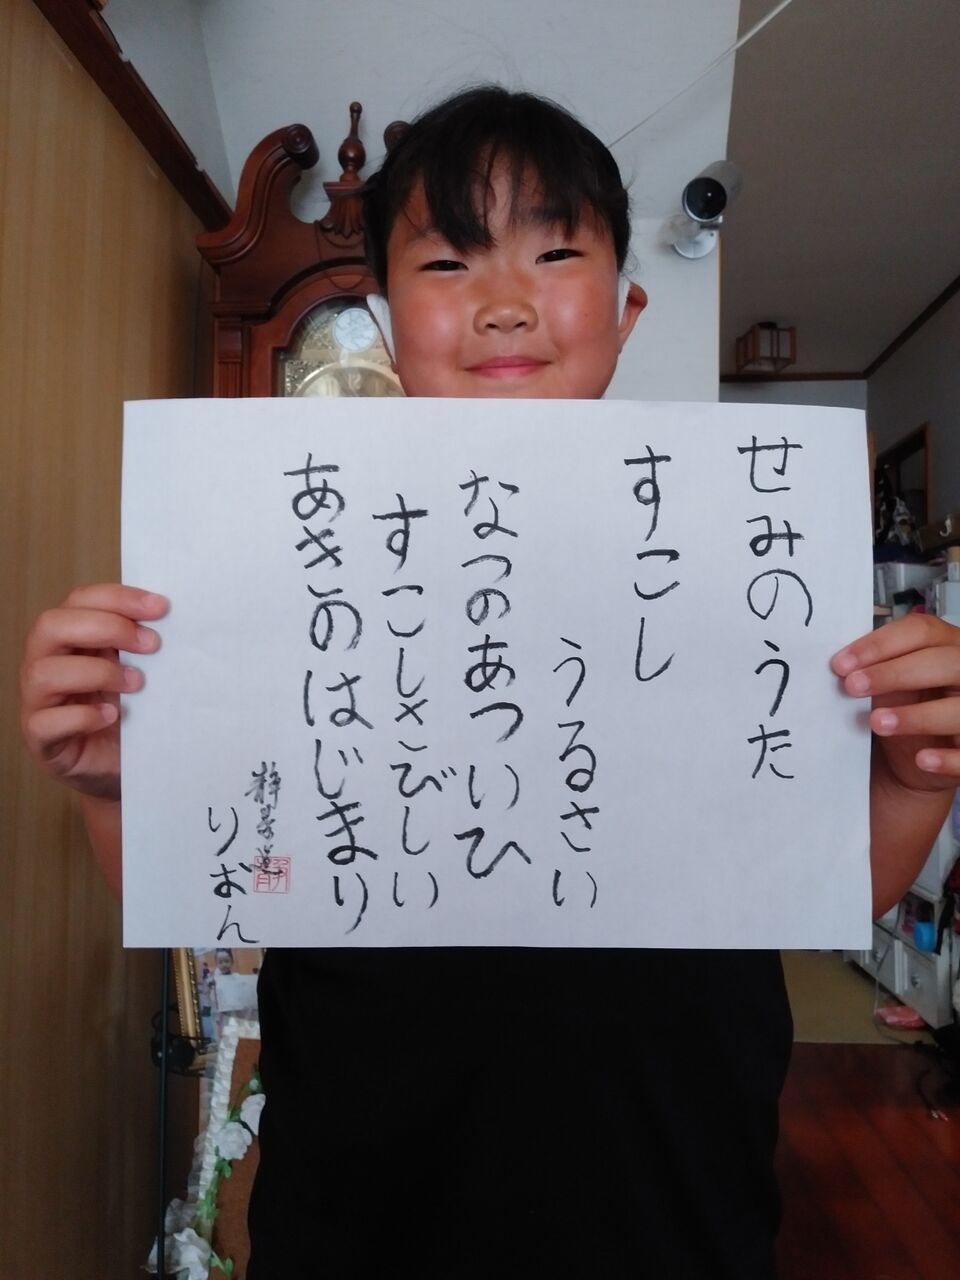 せみのうた
すこし
うるさい
なつのあついひ
すこしさびしい
あきのはじまり
りおん